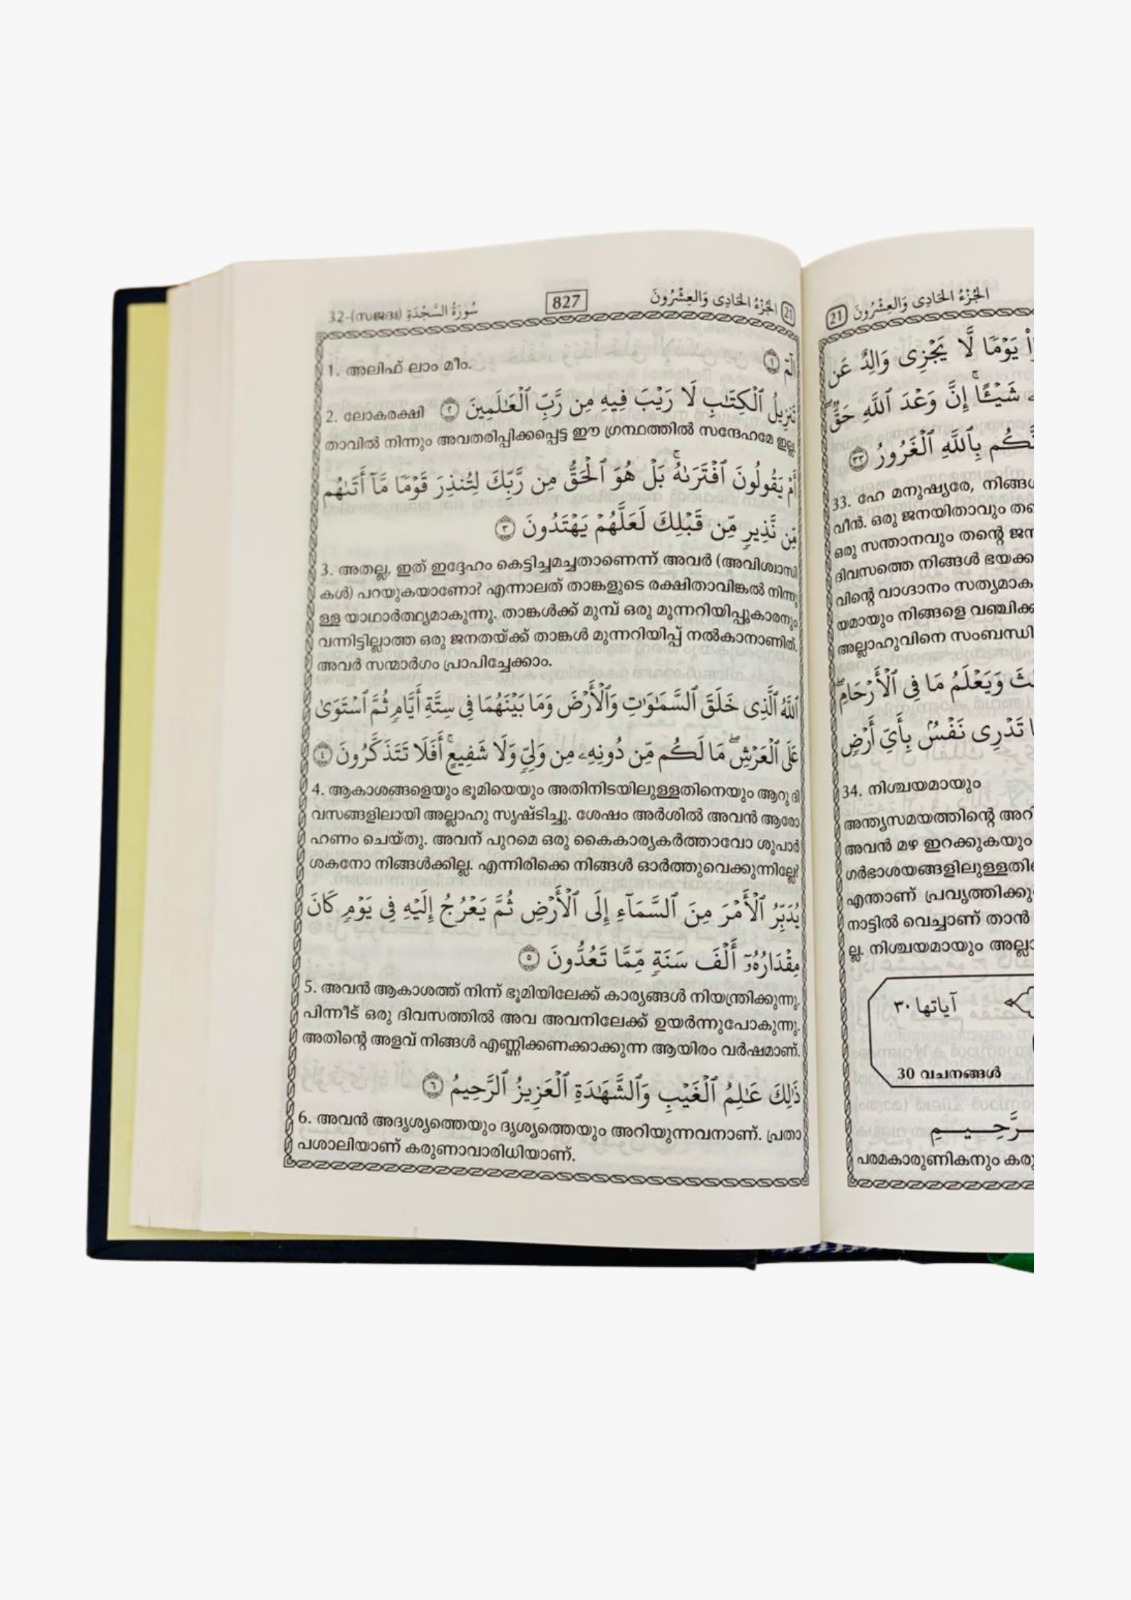 32-(സജദഃ) سُورَةُ السَّجْدَةِ
827
الجُزْءُ الحَادِى وَالعِشْرُونَ 21
الٓمٓ ١
1. അലിഫ് ലാം മീം.
تَنزِيلُ ٱلْكِتَٰبِ لَا رَيْبَ فِيهِ مِن رَّبِّ ٱلْعَٰلَمِينَ ٢
2. ലോകരക്ഷി
താവിൽ നിന്നും അവതരിപ്പിക്കപ്പെട്ട ഈ ഗ്രന്ഥത്തിൽ സന്ദേഹമേ ഇല്ല
أَمْ يَقُولُونَ ٱفْتَرَىٰهُ ۚ بَلْ هُوَ ٱلْحَقُّ مِن رَّبِّكَ لِتُنذِرَ قَوْمًا مَّآ أَتَىٰهُم
مِّن نَّذِيرٍ مِّن قَبْلِكَ لَعَلَّهُمْ يَهْتَدُونَ ٣
3. അതല്ല, ഇത് ഇദ്ദേഹം കെട്ടിച്ചമച്ചതാണെന്ന് അവർ (അവിശ്വാസി
കൾ) പറയുകയാണോ? എന്നാലത് താങ്കളുടെ രക്ഷിതാവിങ്കൽ നിന്നു
ള്ള യാഥാർത്ഥ്യമാകുന്നു. താങ്കൾക്ക് മുമ്പ് ഒരു മുന്നറിയിപ്പുകാരനും
വന്നിട്ടില്ലാത്ത ഒരു ജനതയ്ക്ക് താങ്കൾ മുന്നറിയിപ്പ് നൽകാനാണിത്.
അവർ സന്മാർഗം പ്രാപിച്ചേക്കാം.
ٱللَّهُ ٱلَّذِى خَلَقَ ٱلسَّمَٰوَٰتِ وَٱلْأَرْضَ وَمَا بَيْنَهُمَا فِى سِتَّةِ أَيَّامٍ ثُمَّ ٱسْتَوَىٰ
عَلَى ٱلْعَرْشِ ۖ مَا لَكُم مِّن دُونِهِۦ مِن وَلِىٍّ وَلَا شَفِيعٍ ۚ أَفَلَا تَتَذَكَّرُونَ ٤
4. ആകാശങ്ങളെയും ഭൂമിയെയും അതിനിടയിലുള്ളതിനെയും ആറു ദി
വസങ്ങളിലായി അല്ലാഹു സൃഷ്ടിച്ചു. ശേഷം അർശിൽ അവൻ ആരോ
ഹണം ചെയ്തു. അവന് പുറമെ ഒരു കൈകാര്യകർത്താവോ ശുപാർ
ശകനോ നിങ്ങൾക്കില്ല. എന്നിരിക്കെ നിങ്ങൾ ഓർത്തുവെക്കുന്നില്ലേ?
يُدَبِّرُ ٱلْأَمْرَ مِنَ ٱلسَّمَآءِ إِلَى ٱلْأَرْضِ ثُمَّ يَعْرُجُ إِلَيْهِ فِى يَوْمٍ كَانَ
مِقْدَارُهُۥٓ أَلْفَ سَنَةٍ مِّمَّا تَعُدُّونَ ٥
5. അവൻ ആകാശത്ത് നിന്ന് ഭൂമിയിലേക്ക് കാര്യങ്ങൾ നിയന്ത്രിക്കുന്നു.
പിന്നീട് ഒരു ദിവസത്തിൽ അവ അവനിലേക്ക് ഉയർന്നുപോകുന്നു.
അതിന്റെ അളവ് നിങ്ങൾ എണ്ണിക്കണക്കാക്കുന്ന ആയിരം വർഷമാണ്.
ذَٰلِكَ عَٰلِمُ ٱلْغَيْبِ وَٱلشَّهَٰدَةِ ٱلْعَزِيزُ ٱلرَّحِيمُ ٦
6. അവൻ അദൃശ്യത്തെയും ദൃശ്യത്തെയും അറിയുന്നവനാണ്. പ്രതാ
പശാലിയാണ് കരുണാവാരിധിയാണ്.
21 الجُزْءُ الحَادِى وَالعِشْرُونَ
يَوْمًا لَّا يَجْزِى وَالِدٌ عَن
شَيْـًٔا ۚ إِنَّ وَعْدَ ٱللَّهِ حَقٌّ ۖ
بِٱللَّهِ ٱلْغَرُورُ ٣٣
33. ഹേ മനുഷ്യരേ, നിങ്ങൾ
വീൻ. ഒരു ജനയിതാവും തന്റെ
ഒരു സന്താനവും തന്റെ ജന
ദിവസത്തെ നിങ്ങൾ ഭയക്ക
വിന്റെ വാഗ്ദാനം സത്യമാക
യമായും നിങ്ങളെ വഞ്ചിക്ക
അല്ലാഹുവിനെ സംബന്ധി
وَيَعْلَمُ مَا فِى ٱلْأَرْحَامِ ۖ
تَدْرِى نَفْسٌۢ بِأَىِّ أَرْضٍ
34. നിശ്ചയമായും
അന്ത്യസമയത്തിന്റെ അറി
അവൻ മഴ ഇറക്കുകയും
ഗർഭാശയങ്ങളിലുള്ളതി
എന്താണ് പ്രവൃത്തിക്കു
നാട്ടിൽ വെച്ചാണ് താൻ
ല്ല. നിശ്ചയമായും അല്ലാ
آياتها ٣٠
30 വചനങ്ങൾ
ـرَّحِـيـمِ
പരമകാരുണികനും കരു